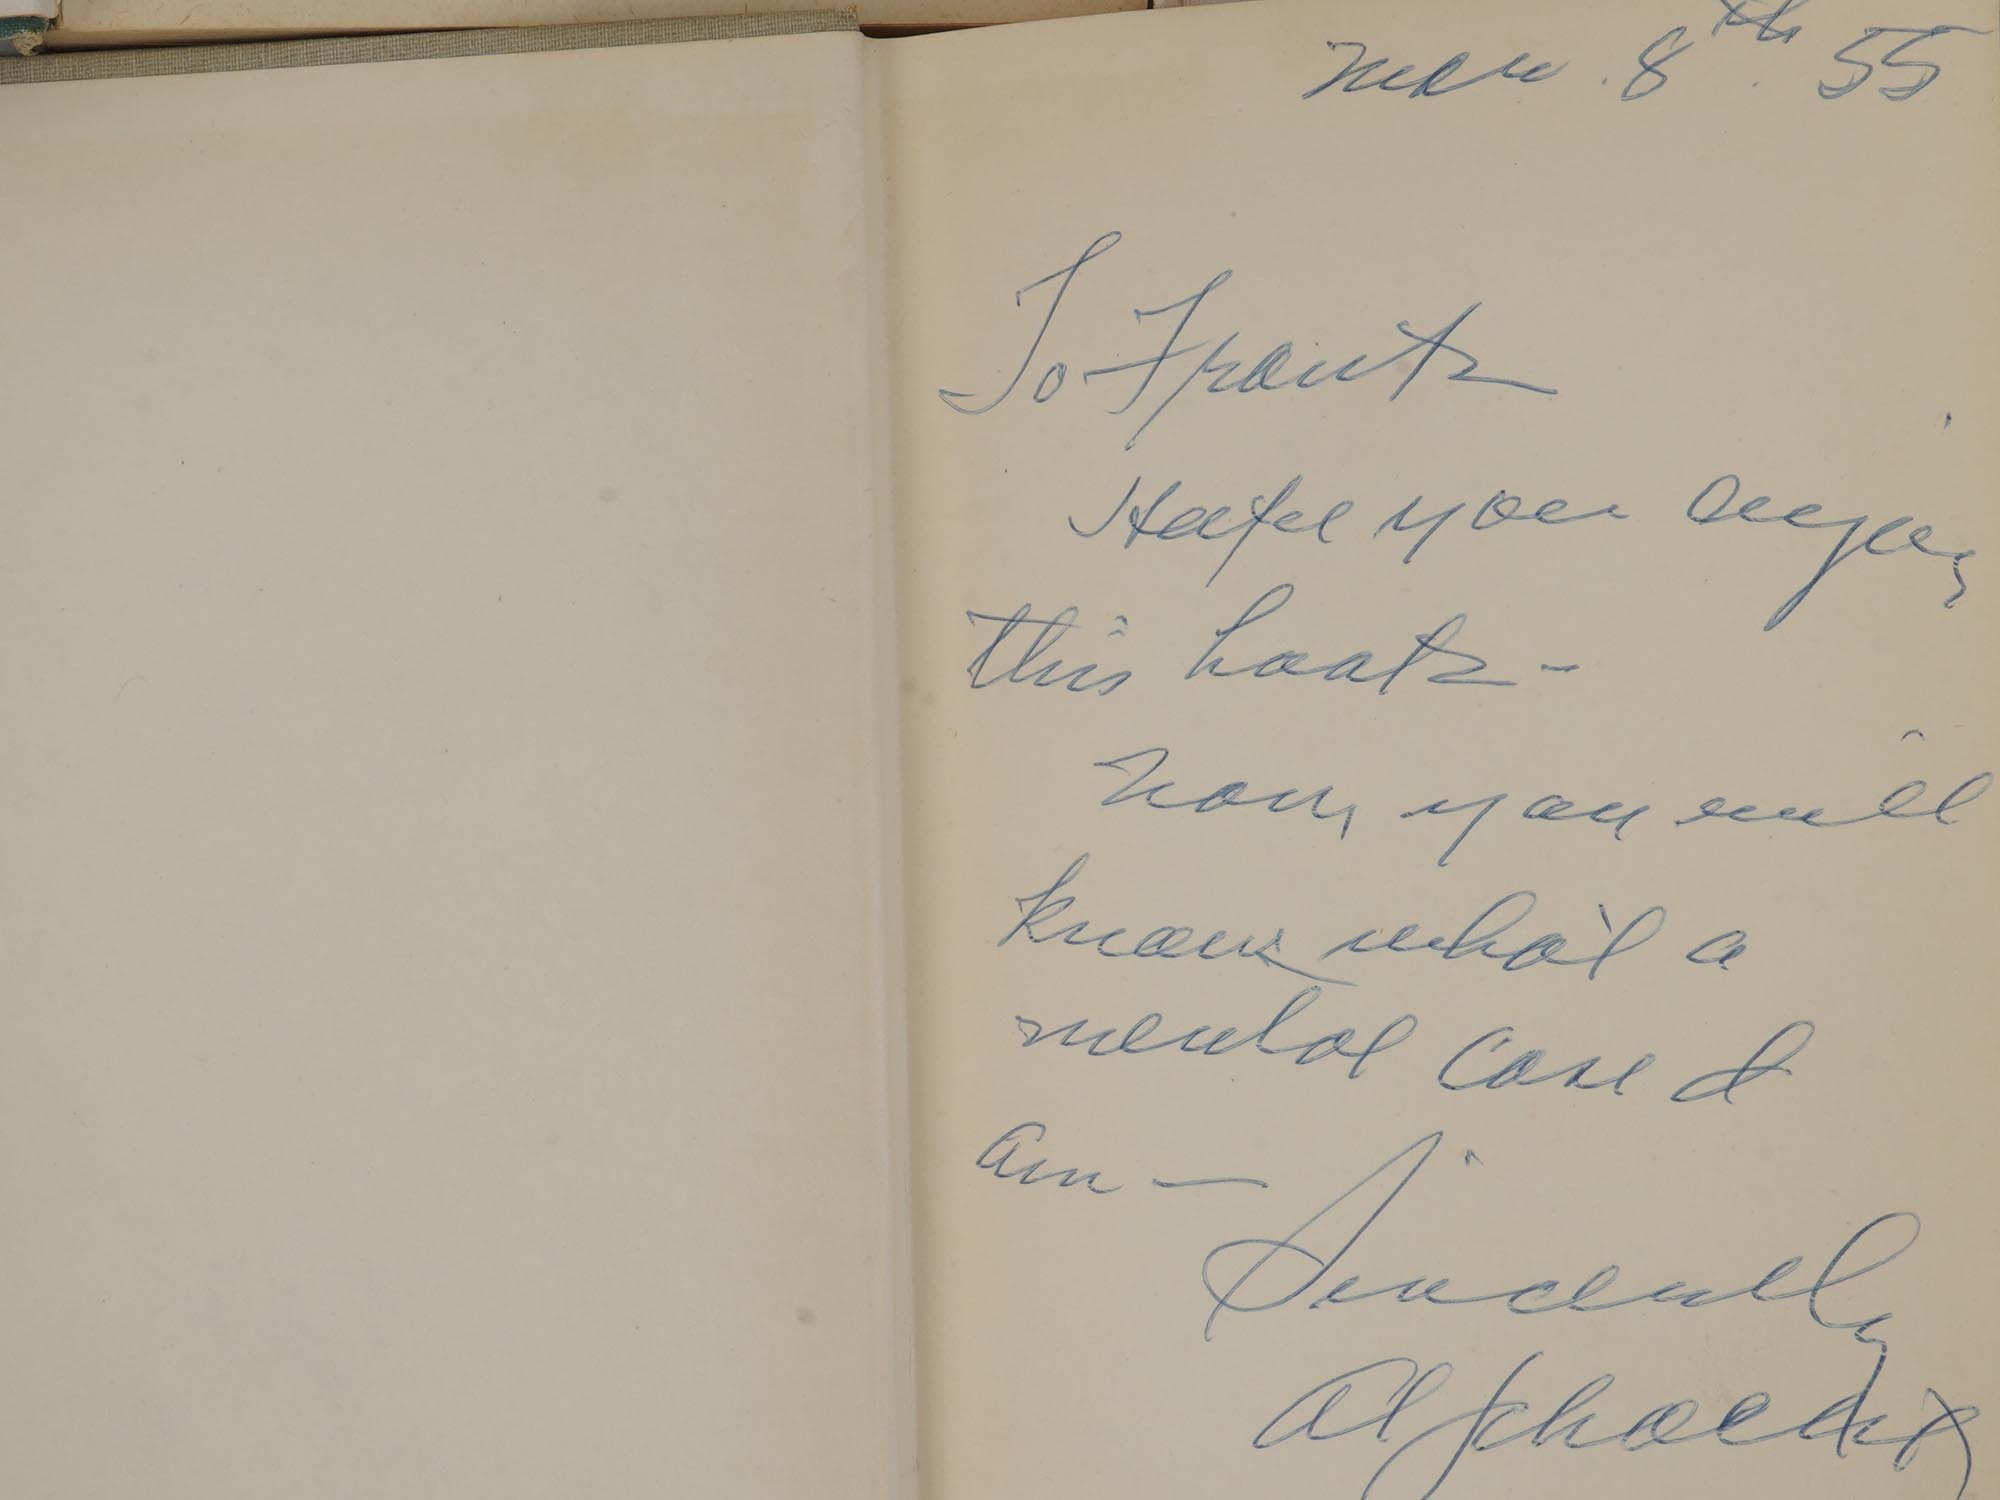 Nov. 8th. 55
To Frank
Hope you enjoy
this book -
Now, you will
know what a
mental case I
am —
Sincerely
Al